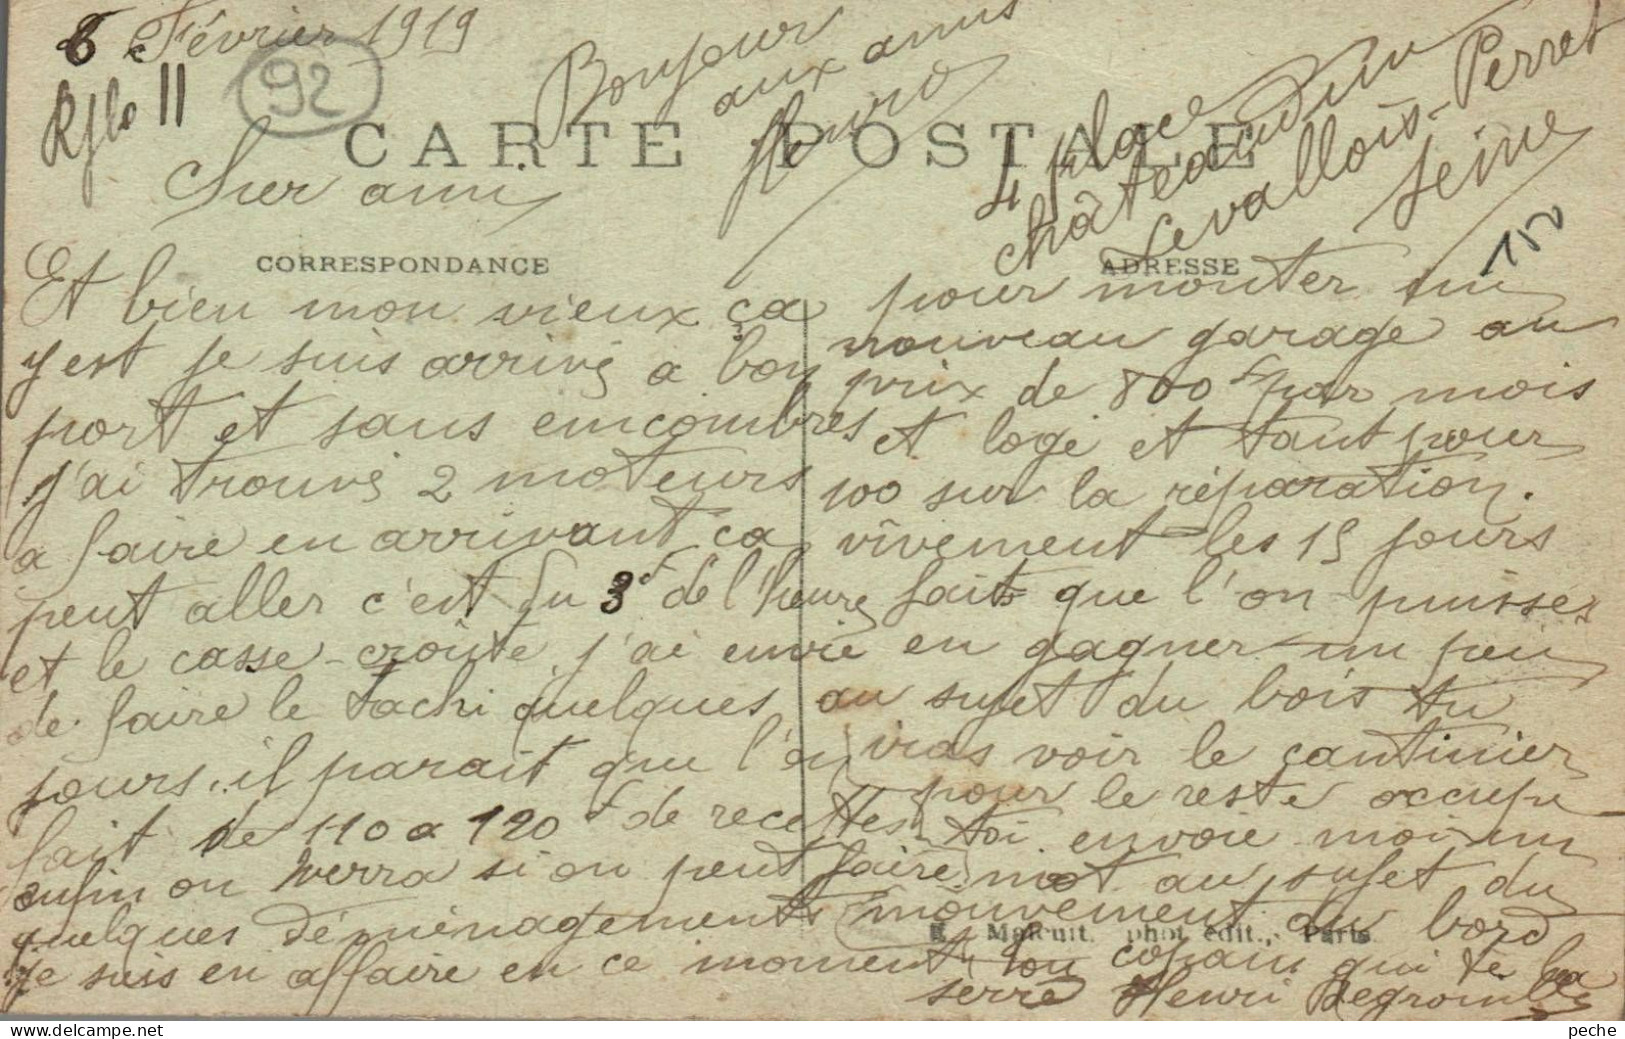 6 Février 1919
92
11
Bonjour
aux amis
Henri
4 place
châteaudun
Levallois-Perret
Seine
CARTE POSTALE
Sur ami
CORRESPONDANCE
ADRESSE
Et bien mon vieux ça
y est je suis arrivé a bon
port et sans emcombres
j'ai trouvé 2 moteurs
a faire en arrivant ça
peut aller c'est du 3f de l'heure
et le casse-croûte j'ai envie
de faire le tachi quelques
jours. il parait que l'on
fait de 110 a 120f de recettes
enfin on verra si on peut faire
quelques déménagements
je suis en affaire en ce moment
pour monter un
nouveau garage au
prix de 800f par mois
et logé et tant pour
100 sur la réparation.
vîvement les 15 jours
faits que l'on puisses
en gagner un peu
au sujet du bois tu
iras voir le cantinier
pour le reste occupe
toi envoie moi un
mot au sujet du
mouvement du bord
Malcuit, phot. édit., Paris
ton copain qui te la
serre Henri
peche